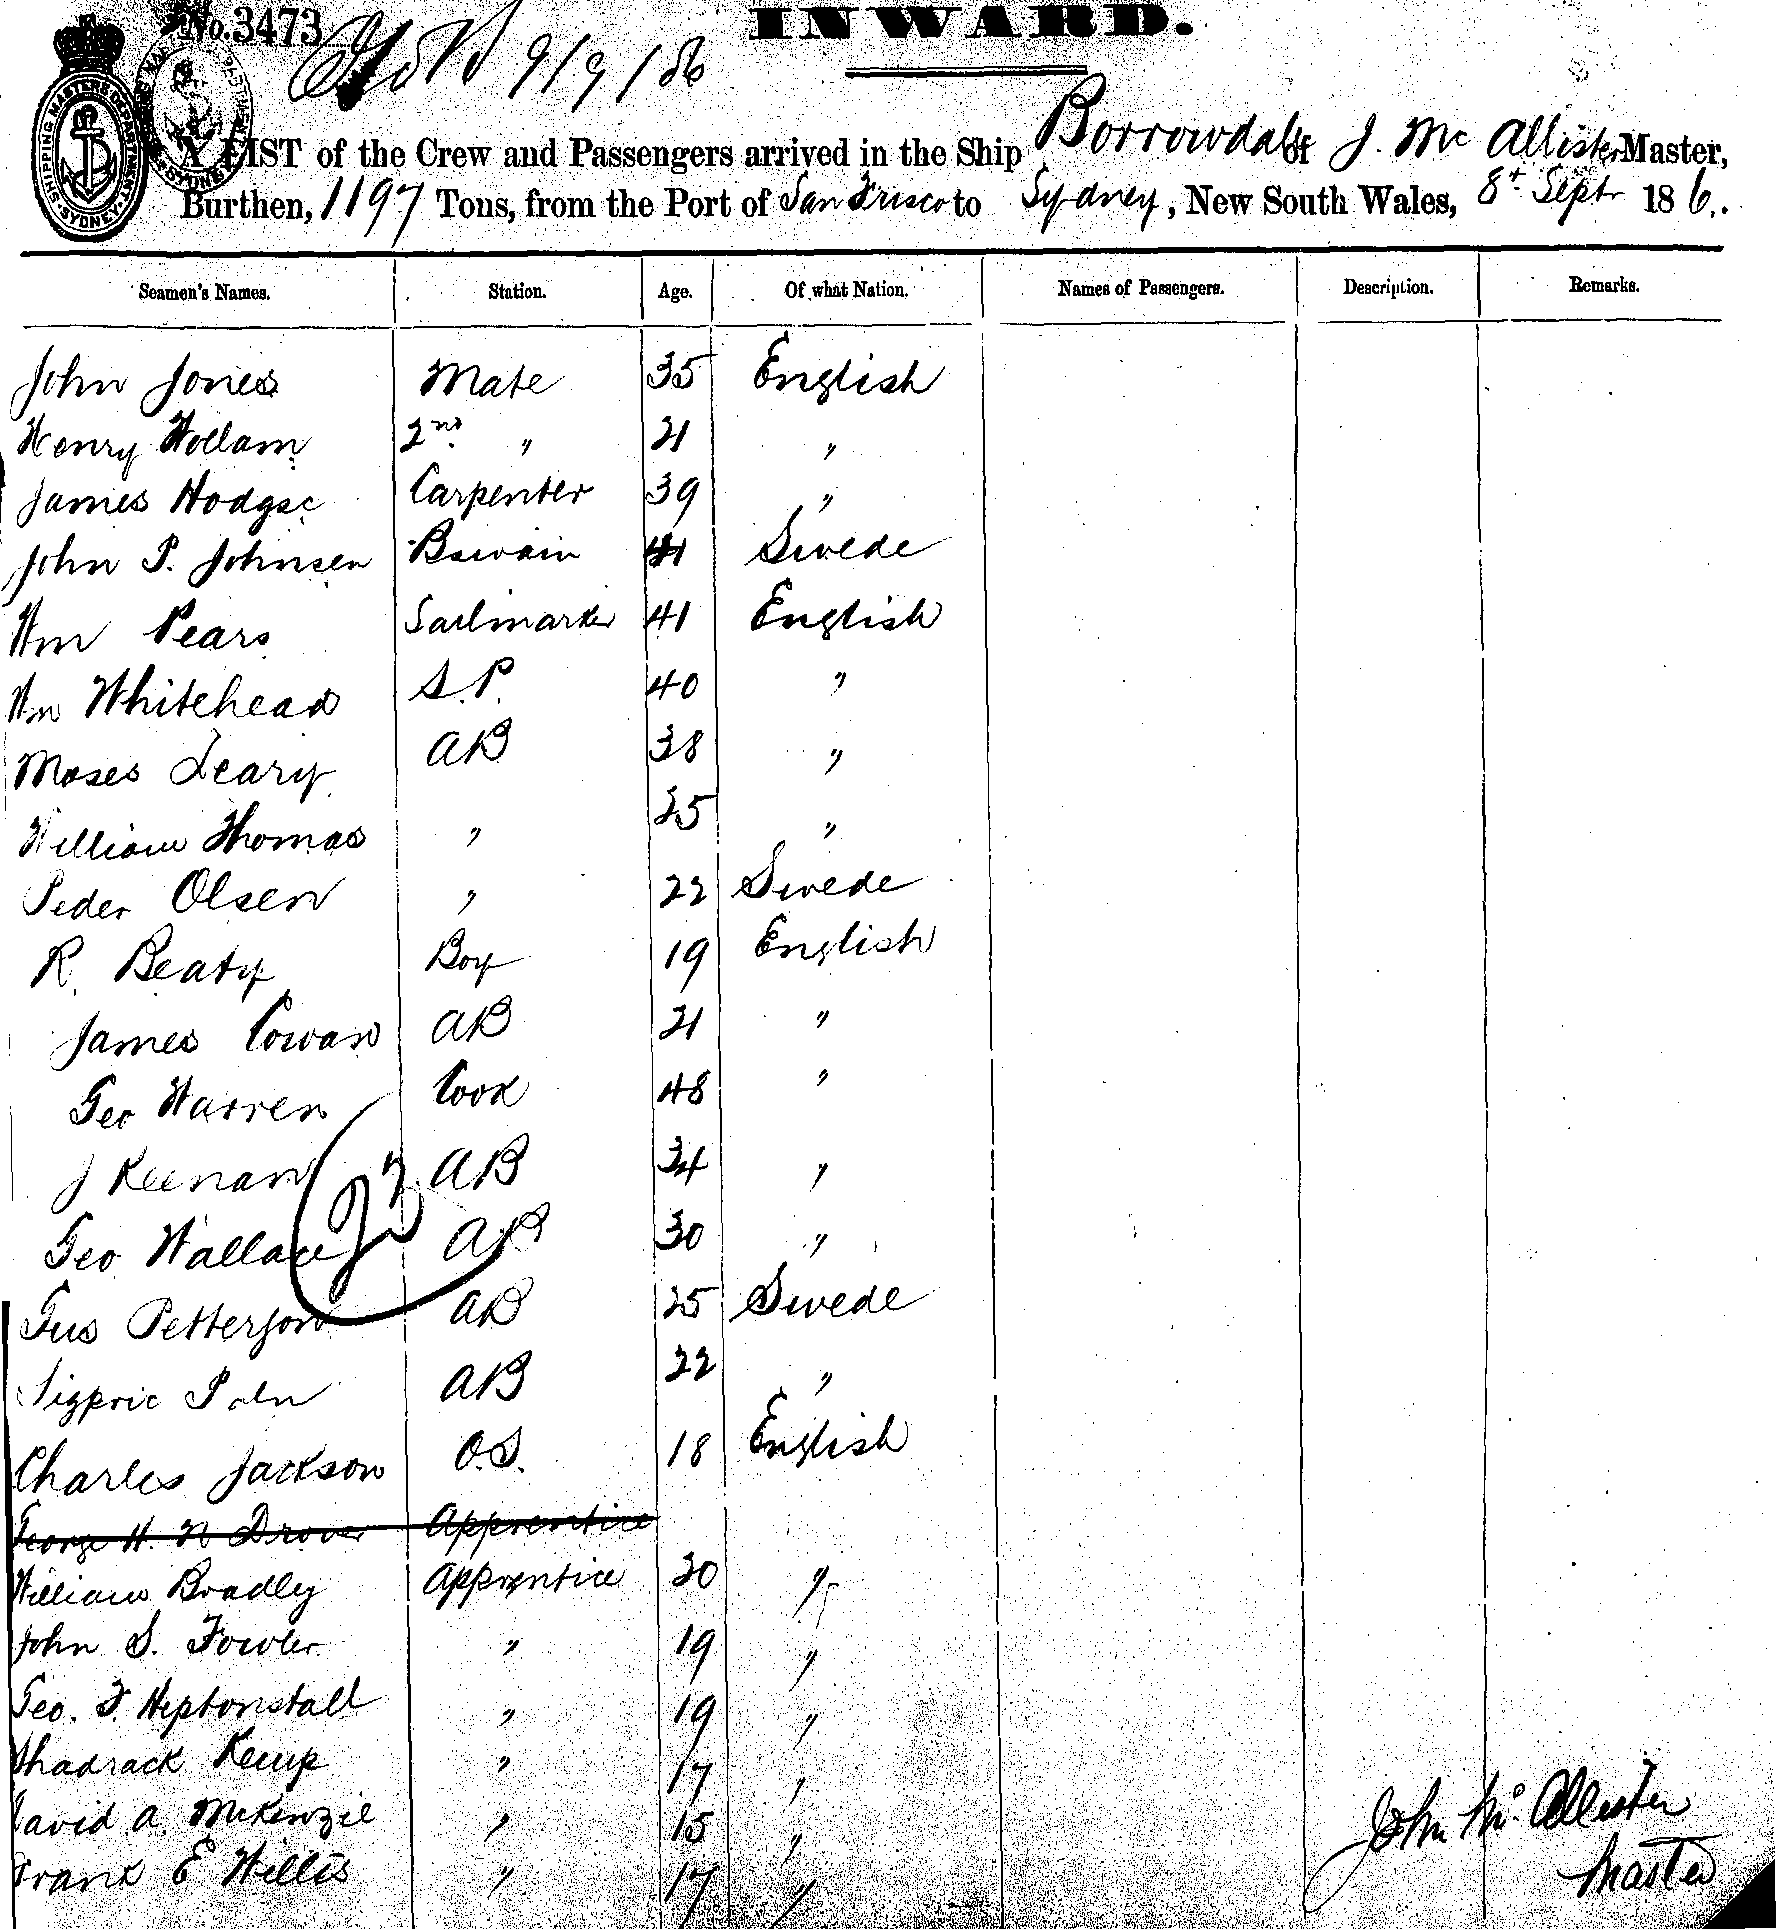 No. 3473
INWARD.
9/9/86
SHIPPING MASTERS DEPARTMENT SYDNEY
A LIST of the Crew and Passengers arrived in the Ship Borrowdale of J. McAllister Master,
Burthen, 1197 Tons, from the Port of San Frisco to Sydney, New South Wales, 8t Septr 186..
Seamen's Names. Station. Age. Of what Nation. Names of Passengers. Description. Remarks.
John Jones Mate 35 English
Henry Wollam 2nd " 21 "
James Hodgse Carpenter 39 "
John P. Johnsen Boswain 41 Swede
Wm Pears Sailmarker 41 English
Wm Whitehead S.P. 40 "
Moses Leary AB 38 "
William Thomas " 25 "
Peder Olsen " 22 Swede
R. Beaty Boy 19 English
James Cowan AB 21 "
Geo Warren Cook 48 "
J Keenan AB 34 "
Geo Wallace AB 30 "
Gus Petterson AB 25 Swede
AB 22 "
Charles Jackson O.S. 18 English
George H. N Drover Apprentice
William Bradley Apprentice 20 "
John S. Fowler " 19 "
Geo. F. Heptonstall " 19 "
Shadrack Kemp " 17 "
David A. McKenzie " 15 "
Frank E Willis " 17 "
John McAllister
Master